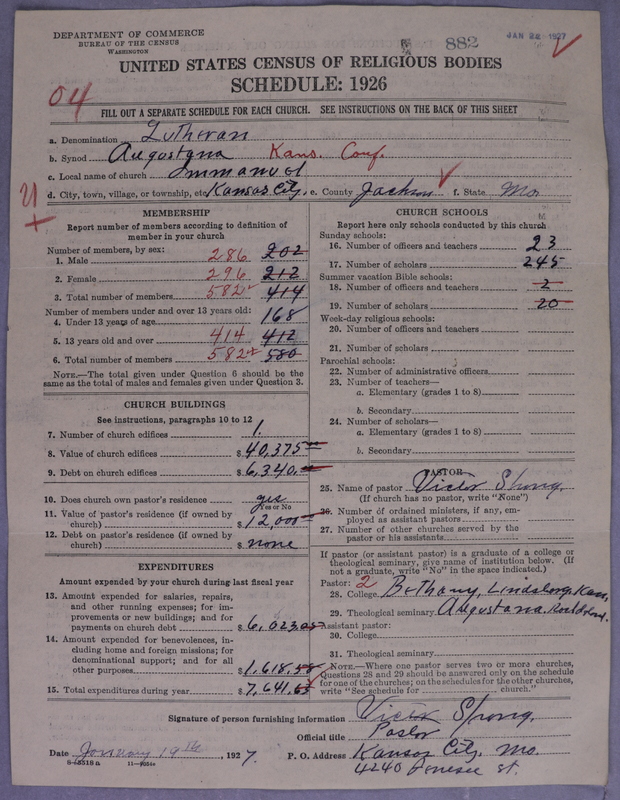 DEPARTMENT OF COMMERCE
BUREAU OF THE CENSUS
WASHINGTON
882
JAN 22 1927
UNITED STATES CENSUS OF RELIGIOUS BODIES
SCHEDULE: 1926
04
FILL OUT A SEPARATE SCHEDULE FOR EACH CHURCH. SEE INSTRUCTIONS ON THE BACK OF THIS SHEET
a. Denomination Lutheran
b. Synod Augustana Kans. Conf.
c. Local name of church Immanuel
d. City, town, village, or township, etc Kansas City, e. County Jackson f. State Mo.
MEMBERSHIP
Report number of members according to definition of
member in your church
Number of members, by sex:
1. Male 286 202
2. Female 296 212
3. Total number of members 582 414
Number of members under and over 13 years old:
4. Under 13 years of age 168
5. 13 years old and over 414 412
6. Total number of members 582 580
NOTE.—The total given under Question 6 should be
same as the total of males and females given under Question 3.
CHURCH BUILDINGS
See instructions, paragraphs 10 to 12
7. Number of church edifices 1.
8. Value of church edifices $ 40,375
9. Debt on church edifices $ 6,340
10. Does church own pastor's residence yes
Yes or No
11. Value of pastor's residence (if owned by
church) $ 12,000
12. Debt on pastor's residence (if owned by
church) $ none
EXPENDITURES
Amount expended by your church during last fiscal year
13. Amount expended for salaries, repairs,
and other running expenses; for im-
provements or new buildings; and for
payments on church debt $ 6,023.05
14. Amount expended for benevolences, in-
cluding home and foreign missions; for
denominational support; and for all
other purposes $ 1,618.58
15. Total expenditures during year $ 7,641.63
CHURCH SCHOOLS
Report here only schools conducted by this church
Sunday schools:
16. Number of officers and teachers 23
17. Number of scholars 245
Summer vacation Bible schools:
18. Number of officers and teachers 2
19. Number of scholars 20
Week-day religious schools:
20. Number of officers and teachers
21. Number of scholars
Parochial schools:
22. Number of administrative officers
23. Number of teachers—
a. Elementary (grades 1 to 8)
b. Secondary
24. Number of scholars—
a. Elementary (grades 1 to 8)
b. Secondary
PASTOR
25. Name of pastor Victor Spong,
(If church has no pastor, write "None")
26. Number of ordained ministers, if any, em-
ployed as assistant pastors
27. Number of other churches served by the
pastor or his assistants
If pastor (or assistant pastor) is a graduate of a college or
theological seminary, give name of institution below. (If
not a graduate, write "No" in the space indicated.)
Pastor: 2
28. College Bethany, Lindsborg, Kan,
29. Theological seminary Augustana
Assistant pastor:
30. College
31. Theological seminary
NOTE.—Where one pastor serves two or more churches,
Questions 28 and 29 should be answered only on the schedule
for one of the churches; on the schedules for the other churches,
write "See schedule for church."
Signature of person furnishing information Victor Spong,
Official title Pastor
Date January 19th, 1927. P. O. Address Kansas City, Mo.
4240 Genesee St.